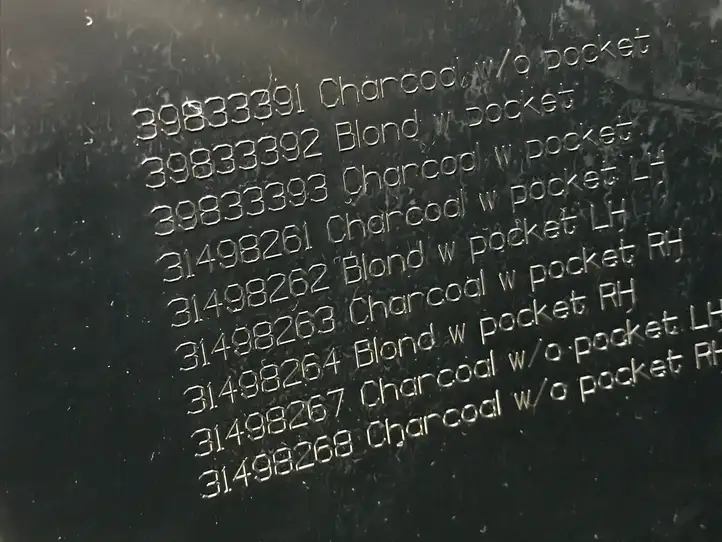 39833391 Charcoal w/o pocket
39833392 Blond w pocket
39833393 Charcoal w pocket
31498261 Charcoal w pocket LH
31498262 Blond w pocket LH
31498263 Charcoal w pocket RH
31498264 Blond w pocket RH
31498267 Charcoal w/o pocket LH
31498268 Charcoal w/o pocket RH